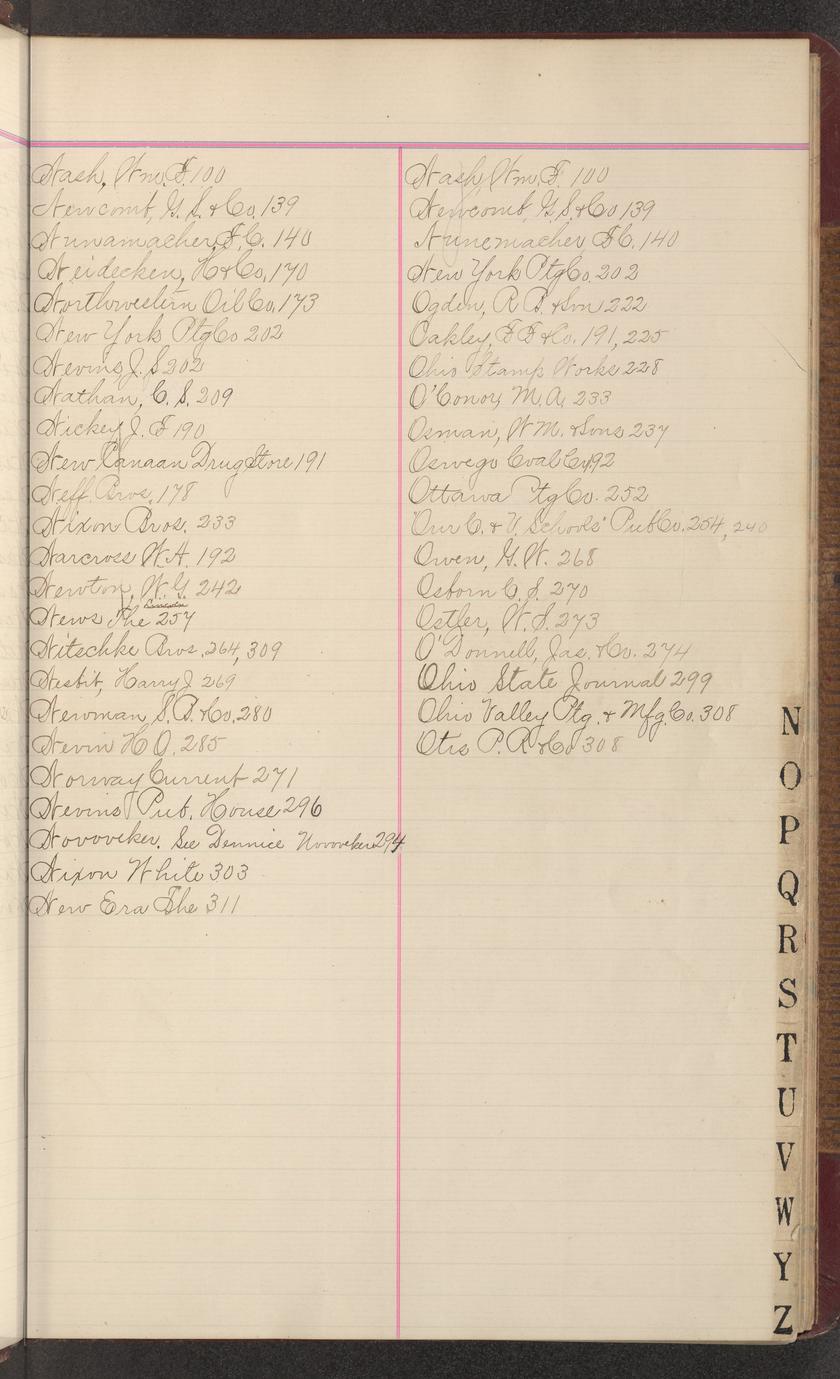 Nash, Wm. F. 100
Newcomb, G. S. & Co. 139
Nunamacher, F. C. 140
Neidecken, H & Co, 170
Northwestern Oil Co, 173
New York Ptg Co 202
Nevins J. S 202
Nathan, C. S. 209
Nickey J. F 190
New Canaan Drug Store 191
Neff Bros. 178
Nixon Bros. 233
Narcross W. H. 192
Newton, W. G. 242
News The 257
Nitschke Bros. 264, 309
Nesbit, Harry J 269
Newman S. B. & Co. 280
Nevin H O. 285
Norway Current 271
Nevins Pub. House 296
Novoveker. See Dennice Novoveker 294
Nixon White 303
New Era The 311
Nash, Wm. F. 100
Newcomb, G. S. & Co 139
Nunemacher F C. 140
New York Ptg Co. 202
Ogden, R B. & Son 222
Oakley, F F & Co. 191, 225
Ohio Stamp Works 228
O'Conor M. A. 233
Osman, W M. & Sons 237
Oswego Coal Co, 92
Ottawa Ptg Co. 252
"Our C. & V. Schools" Pub Co. 254, 240
Owen, G. W. 268
Osborn C. S. 270
Ostler, W. S. 273
O'Donnell, Jas. & Co. 274
Ohio State Journal 299
Ohio Valley Ptg. & Mfg. Co. 308
Otis P. R & Co 308
N
O
P
Q
R
S
T
U
V
W
Y
Z